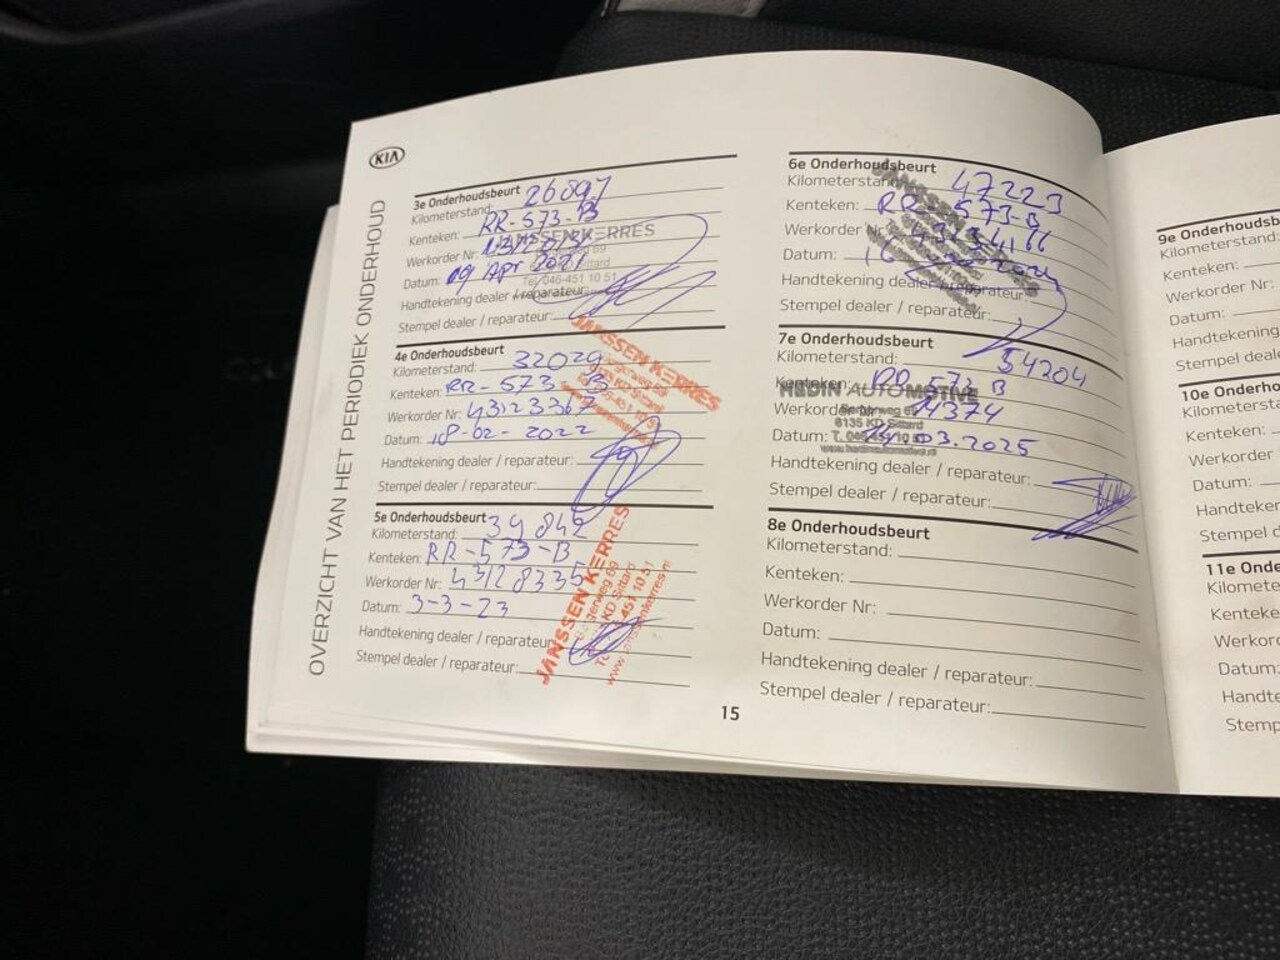 KIA
OVERZICHT VAN HET PERIODIEK ONDERHOUD
3e Onderhoudsbeurt
Kilometerstand: 26097
Kenteken: RR-573-B
Werkorder Nr:
Datum: 09 Apr 2021
Handtekening dealer / reparateur:
Stempel dealer / reparateur:
JANSSEN KERRES
Sittard
Tel 046-451 10 51
4e Onderhoudsbeurt
Kilometerstand: 32029
Kenteken: RR-573-B
Werkorder Nr: 43123367
Datum: 18-02-2022
Handtekening dealer / reparateur:
Stempel dealer / reparateur:
JANSSEN KERRES
5e Onderhoudsbeurt
Kilometerstand: 39842
Kenteken: RR-573-B
Werkorder Nr: 43128335
Datum: 3-3-23
Handtekening dealer / reparateur:
Stempel dealer / reparateur:
JANSSEN KERRES
KD Sittard
451 10 51
6e Onderhoudsbeurt
Kilometerstand: 47223
Kenteken: RR-573-B
Werkorder Nr: 43134166
Datum:
Handtekening dealer / reparateur:
Stempel dealer / reparateur:
JANSSEN
7e Onderhoudsbeurt
Kilometerstand: 54204
Kenteken: RR 573 B
Werkorder Nr: 14374
Datum: 03.2025
HEDIN AUTOMOTIVE
6135 KD Sittard
www.hedinautomotive.nl
Handtekening dealer / reparateur:
Stempel dealer / reparateur:
8e Onderhoudsbeurt
Kilometerstand:
Kenteken:
Werkorder Nr:
Datum:
Handtekening dealer / reparateur:
Stempel dealer / reparateur:
15
9e Onderhoudsb
Kilometerstand:
Kenteken:
Werkorder Nr:
Datum:
Handtekening
Stempel deal
10e Onderho
Kilometersta
Kenteken:
Werkorder
Datum:
Handteker
Stempel d
11e Onde
Kilomete
Kenteke
Werkor
Datum:
Handte
Stemp